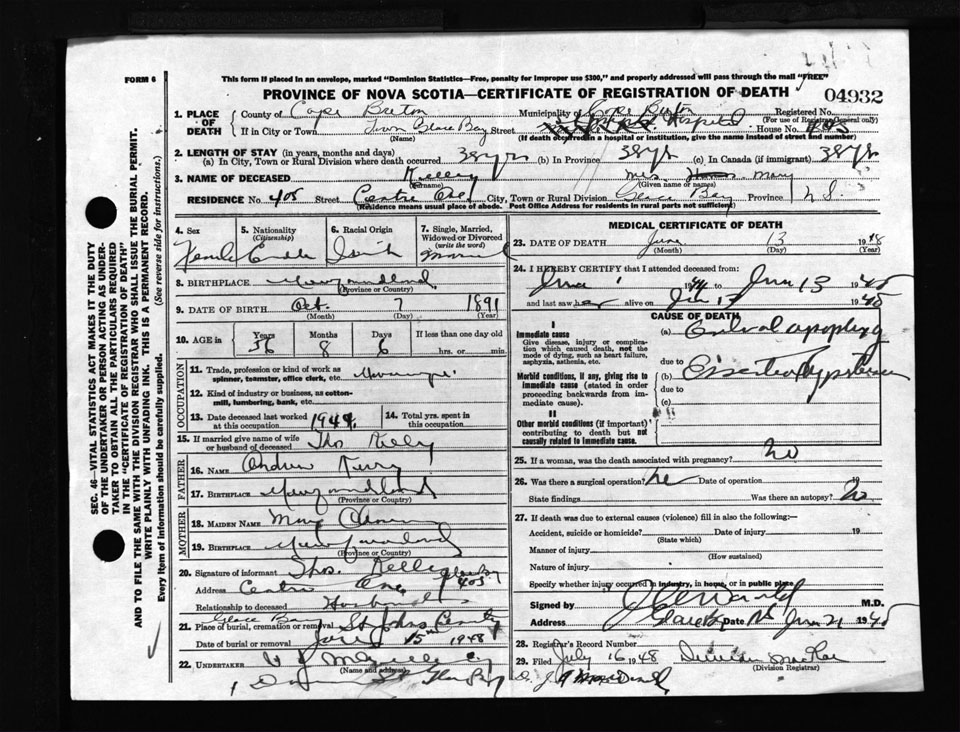 FORM 6
This form if placed in an envelope, marked "Dominion Statistics—Free, penalty for improper use $300," and properly addressed will pass through the mail "FREE"
PROVINCE OF NOVA SCOTIA—CERTIFICATE OF REGISTRATION OF DEATH
04932
1. PLACE OF DEATH
County of Cape Breton Municipality of Cape Breton Registered No.
(For use of Registrar Deputy only)
If in City or Town Town Glace Bay Street Hospital House No. 405
(Name) (If death occurred in a hospital or institution, give the name instead of street and number)
2. LENGTH OF STAY (in years, months and days)
(a) In City, Town or Rural Division where death occurred 38 yrs (b) In Province 38 yrs (c) In Canada (if immigrant) 38 yrs
3. NAME OF DECEASED Kelley Mrs. Mary
(Surname) (Given name or names)
RESIDENCE No. 405 Street Centre Ave City, Town or Rural Division Glace Bay Province N S
(Residence means usual place of abode. Post Office Address for residents in rural parts not sufficient)
4. Sex Female
5. Nationality (Citizenship)
6. Racial Origin Irish
7. Single, Married, Widowed or Divorced (write the word) Married
8. BIRTHPLACE Newfoundland
(Province or Country)
9. DATE OF BIRTH Oct. 7 1891
(Month) (Day) (Year)
10. AGE in Years 56 Months 8 Days 6 If less than one day old hrs. or min.
OCCUPATION
11. Trade, profession or kind of work as spinner, teamster, office clerk, etc.
12. Kind of industry or business, as cotton-mill, lumbering, bank, etc.
13. Date deceased last worked at this occupation
14. Total yrs. spent in this occupation
15. If married give name of wife or husband of deceased Thos Kelley
FATHER
16. NAME Andrew Kerry
17. BIRTHPLACE Newfoundland
(Province or Country)
MOTHER
18. MAIDEN NAME Mary
19. BIRTHPLACE Newfoundland
(Province or Country)
20. Signature of informant Thos. Kelley
Address Centre Ave Glace Bay 405
Relationship to deceased Husband
21. Place of burial, cremation or removal Glace Bay St Johns
Date of burial or removal June 15th 1948
22. UNDERTAKER
(Name and address)
MEDICAL CERTIFICATE OF DEATH
23. DATE OF DEATH June 13 1948
(Month) (Day) (Year)
24. I HEREBY CERTIFY that I attended deceased from
June 13 1948
and last saw her alive on 1948
CAUSE OF DEATH
I
Immediate cause
Give disease, injury or complication which caused death, not the mode of dying, such as heart failure, asphyxia, asthenia, etc.
(a) Cerebral apoplexy
due to
Morbid conditions, if any, giving rise to immediate cause (stated in order proceeding backwards from immediate cause).
(b) Essential Hypertension
due to
(c)
II
Other morbid conditions (if important) contributing to death but not causally related to immediate cause.
25. If a woman, was the death associated with pregnancy? no
26. Was there a surgical operation? no Date of operation 19
State findings Was there an autopsy? no
27. If death was due to external causes (violence) fill in also the following:—
Accident, suicide or homicide? Date of injury 19
(State which)
Manner of injury
(How sustained)
Nature of injury
Specify whether injury occurred in industry, in home, or in public place
Signed by M.D.
Address Date June 21 1948
28. Registrar's Record Number
29. Filed July 16 1948 Duncan MacRae
(Division Registrar)
SEC. 46—VITAL STATISTICS ACT MAKES IT THE DUTY
OF THE UNDERTAKER OR PERSON ACTING AS UNDERTAKER TO OBTAIN ALL THE PARTICULARS REQUIRED
IN THE "CERTIFICATE OF REGISTRATION OF DEATH"
AND TO FILE THE SAME WITH THE DIVISION REGISTRAR WHO SHALL ISSUE THE BURIAL PERMIT.
WRITE PLAINLY WITH UNFADING INK. THIS IS A PERMANENT RECORD.
Every item of information should be carefully supplied. (See reverse side for instructions.)